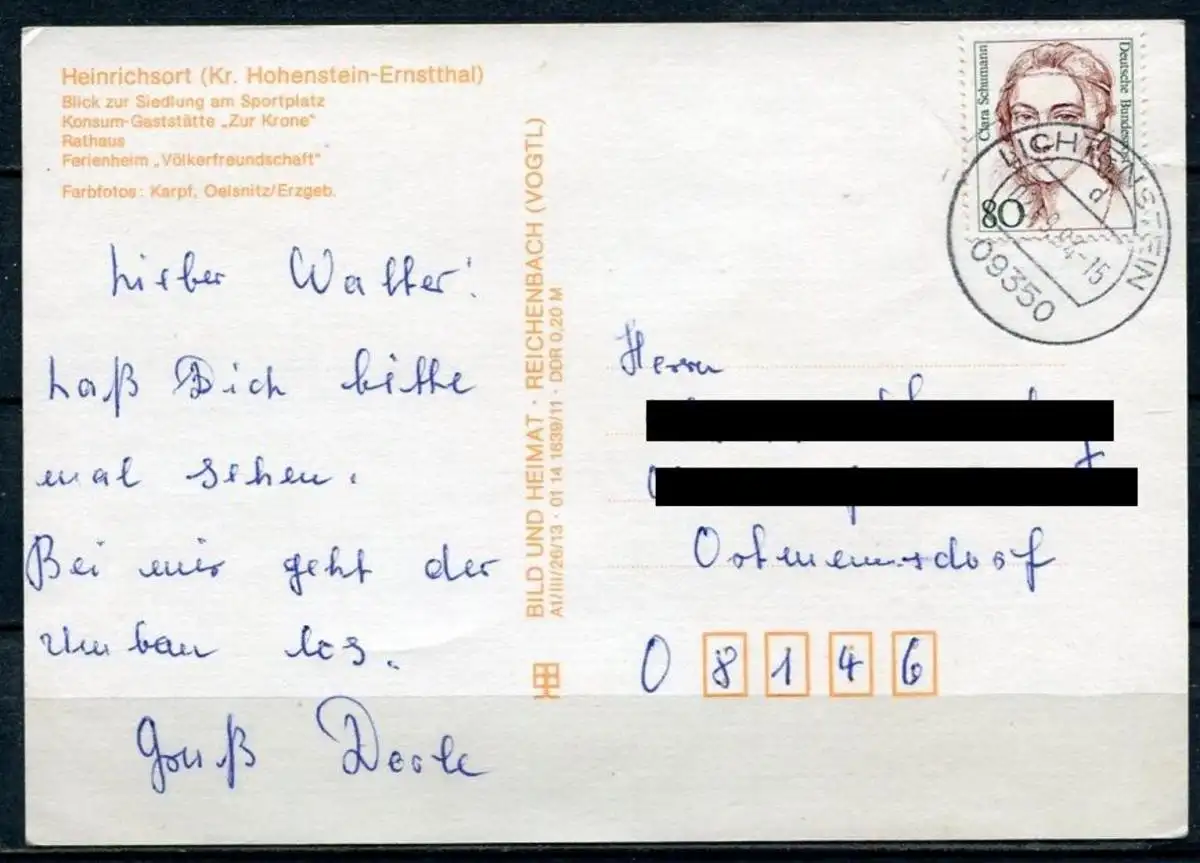 Heinrichsort (Kr. Hohenstein-Ernstthal)
Blick zur Siedlung am Sportplatz
Konsum-Gaststätte „Zur Krone"
Rathaus
Ferienheim „Völkerfreundschaft"
Farbfotos: Karpf, Oelsnitz/Erzgeb.
Lieber Walter!
Laß Dich bitte
mal sehen.
Bei mir geht der
Umbau los.
Gruß
BILD UND HEIMAT · REICHENBACH (VOGTL)
A1/III/26/13 · 01 14 1639/11 · DDR 0,20 M
Clara Schumann
Deutsche Bundespost
80
LICHTENSTEIN
d
94-15
09350
Herrn
Ortmannsdorf
O 8 1 4 6